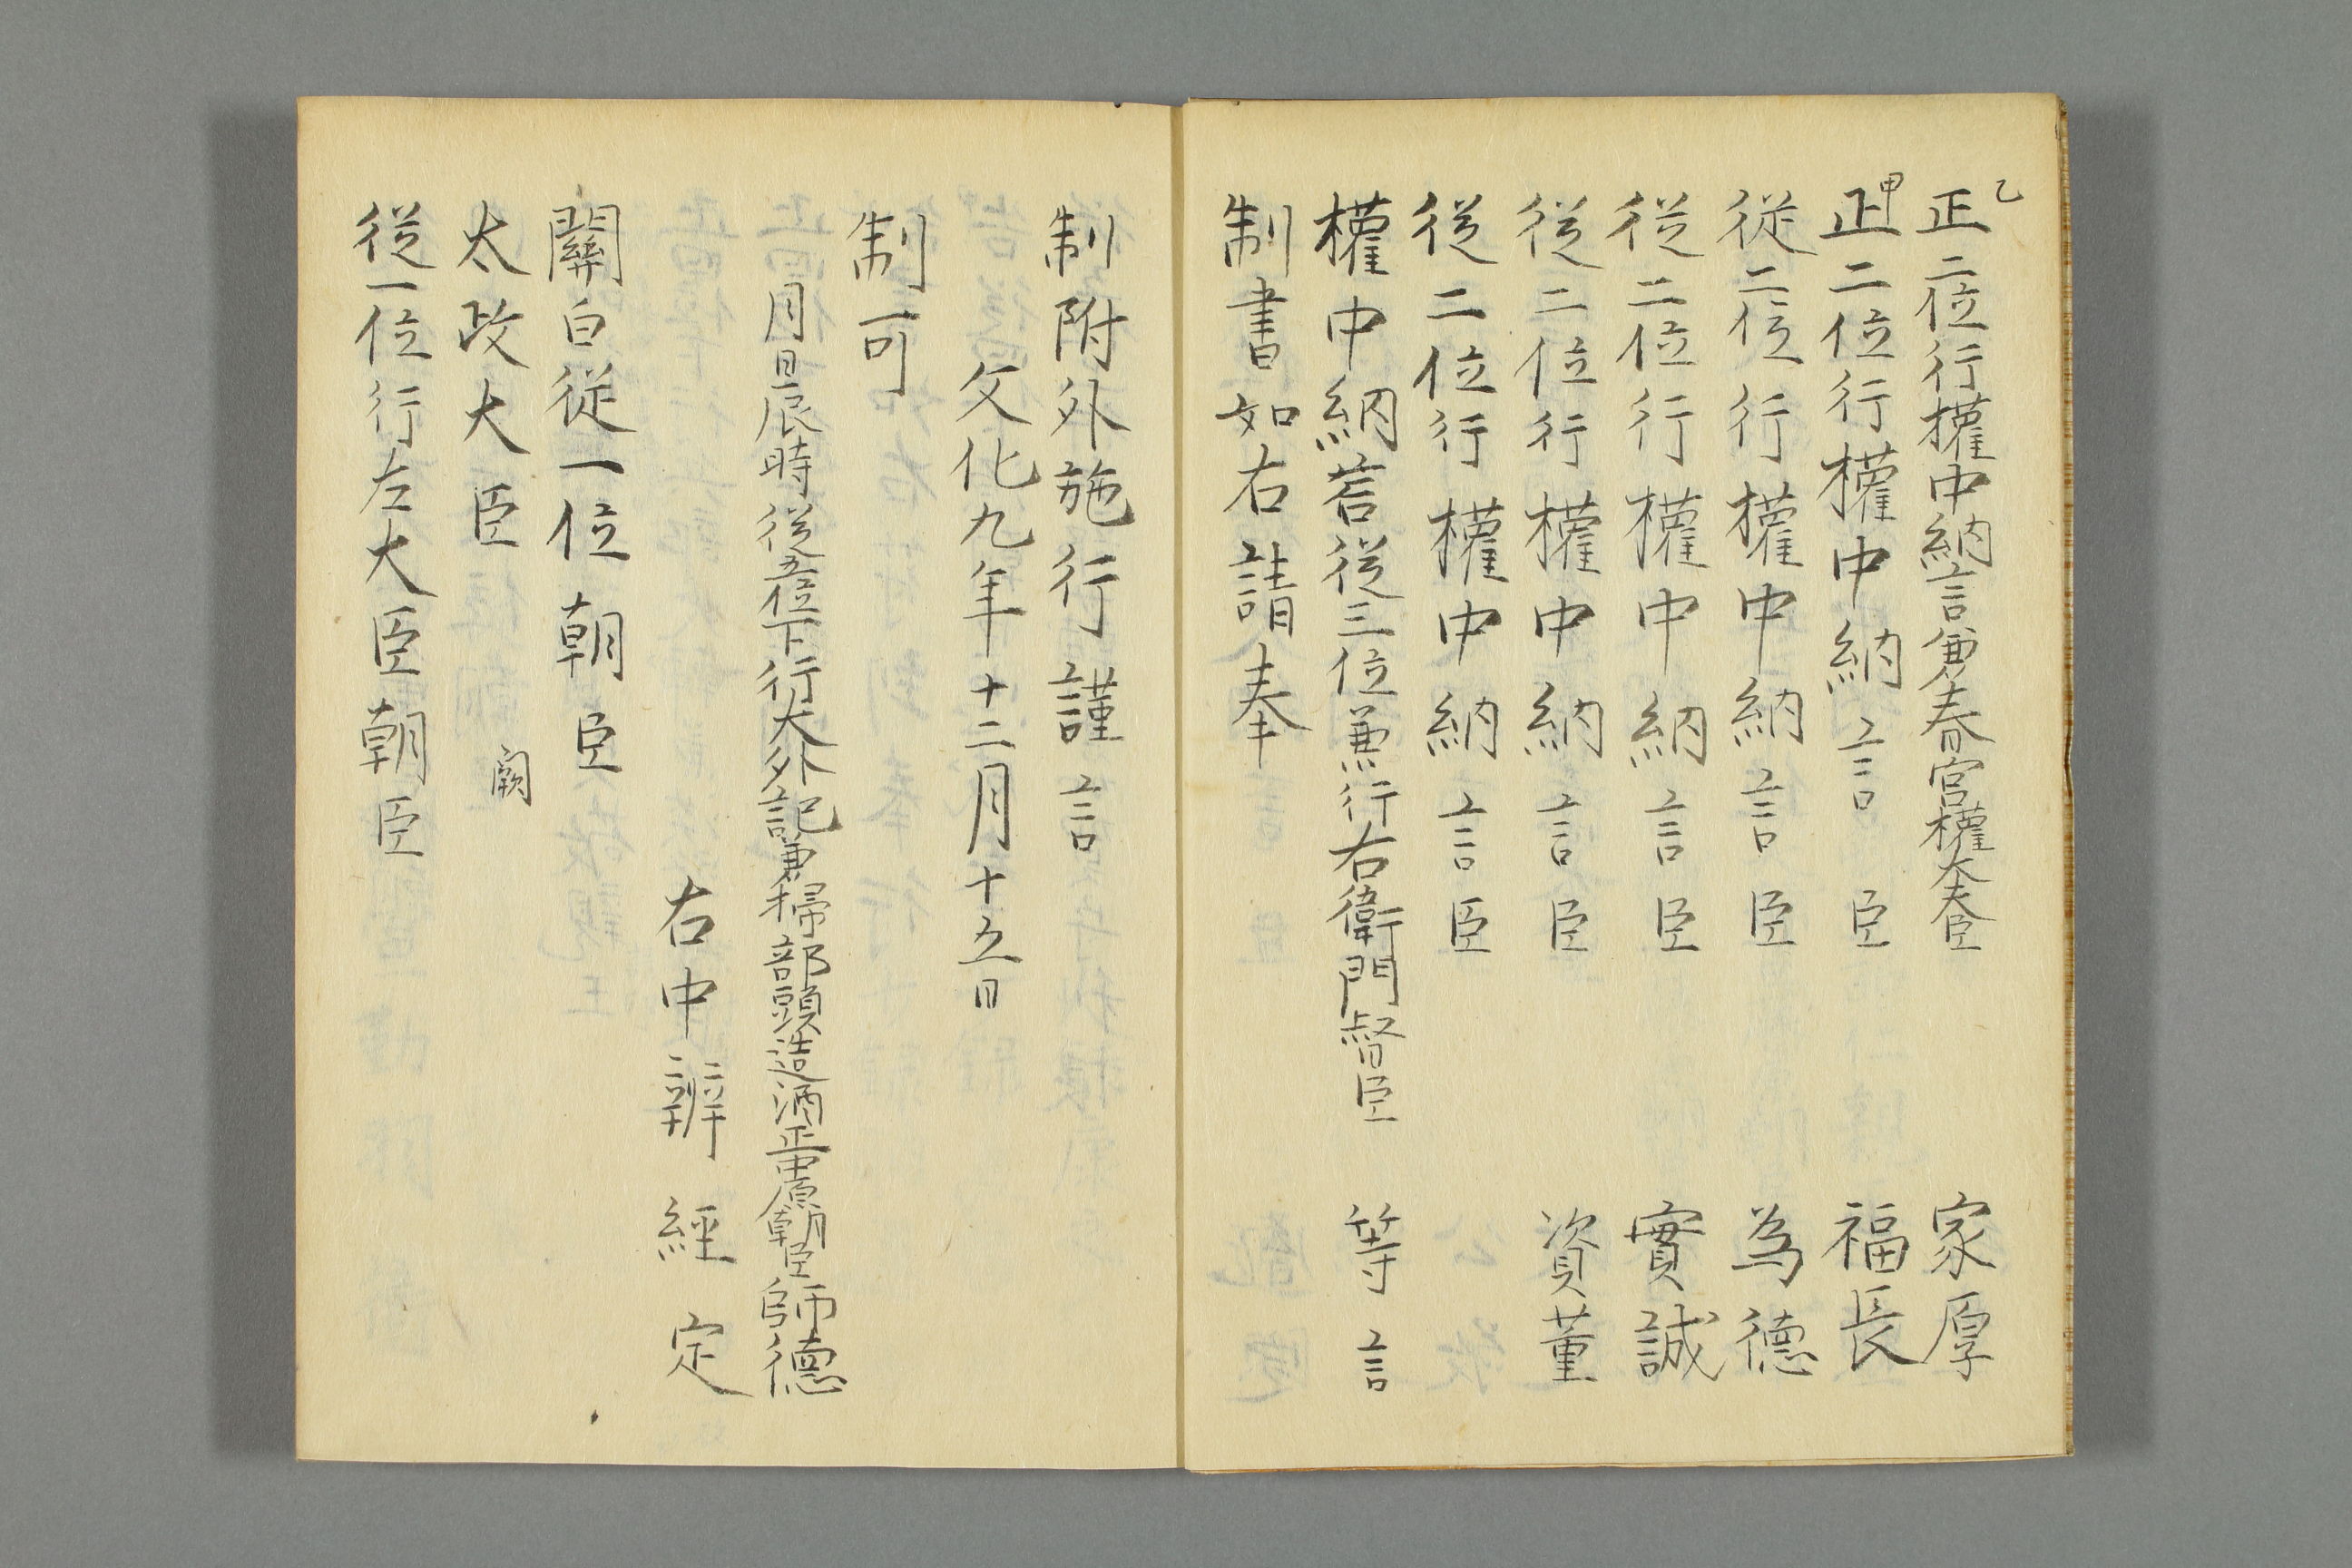 乙
正二位行權中納言兼春宮權大夫臣 家厚
甲
正二位行權中納言臣 福長
從二位行權中納言臣 為德
從二位行權中納言臣 實誠
從二位行權中納言臣 資董
從二位行權中納言臣
權中納言從三位兼行右衛門督臣 等言
制書如右請奉
制附外施行謹言
文化九年十二月十五日
制可
月日辰時從五位下行大外記兼掃部頭造酒正中原朝臣師德
右中辨 經定
關白從一位朝臣
太政大臣 闕
從一位行左大臣朝臣